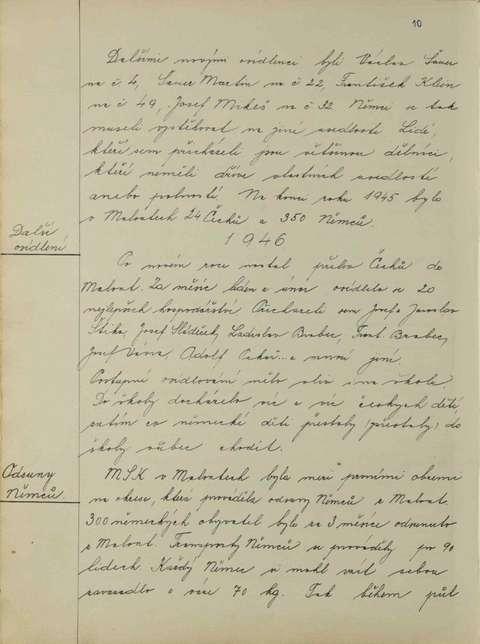 10
Dalšími novými osídlenci byli Václav Šauer
na č. 4, Šauer Martin na č 22, František Klein
na č 49, Josef Mikeš na č 32. Němci se tak
museli vystěhovat na jiné usedlosti. Lidé,
kteří sem přicházeli jsou většinou dělníci,
kteří neměli dříve vlastních usedlostí
anebo profností. Na konci roku 1945 bylo
v Malontech 24 Čechů a 350 Němců.
Další
osídlení
1946
Po novém roce nastal příliv Čechů do
Malont. Za měsíc leden a únor osídlilo se 20
nejlepších hospodářství. Přicházeli sem Josef a Jaroslav
Štika, Josef Sládek, Ladislav Brabec, Frant. Brabec,
Josef Vávra, Adolf a mnozí jiní.
Postupné osídlování mělo vliv i na školu.
Do školy docházelo víc a víc českých dětí,
zatím co německé děti přestaly (přestaly) do
školy vůbec chodit.
Odsuny
Němců.
MSK v Malontech byla mezi prvními obcemi
na okrese, která prováděla odsuny Němců z Malont.
300 německých obyvatel bylo za 3 měsíce odsunuto
z Malont. Transporty Němců se prováděly po 90
lidech. Každý Němec si mohl vzít sebou
zavazadlo o váze 70 kg. Tak během půl